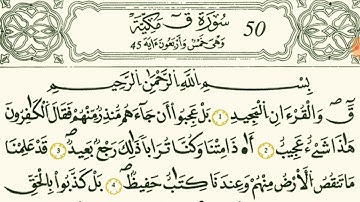 سُورَةُ قٓ مَكِّيَّة 50
وَهِىَ خَمْسٌ وَأَرْبَعُونَ ءَايَة 45
بِسْمِ اللَّهِ الرَّحْمَٰنِ الرَّحِيمِ
قٓ وَالْقُرْءَانِ الْمَجِيدِ 1 بَلْ عَجِبُوا أَن جَآءَهُم مُّنذِرٌ مِّنْهُمْ فَقَالَ الْكَٰفِرُونَ
هَٰذَا شَىْءٌ عَجِيبٌ 2 أَءِذَا مِتْنَا وَكُنَّا تُرَابًا ذَٰلِكَ رَجْعٌ بَعِيدٌ 3 قَدْ عَلِمْنَا
مَا تَنقُصُ الْأَرْضُ مِنْهُمْ وَعِندَنَا كِتَٰبٌ حَفِيظٌ 4 بَلْ كَذَّبُوا بِالْحَقِّ